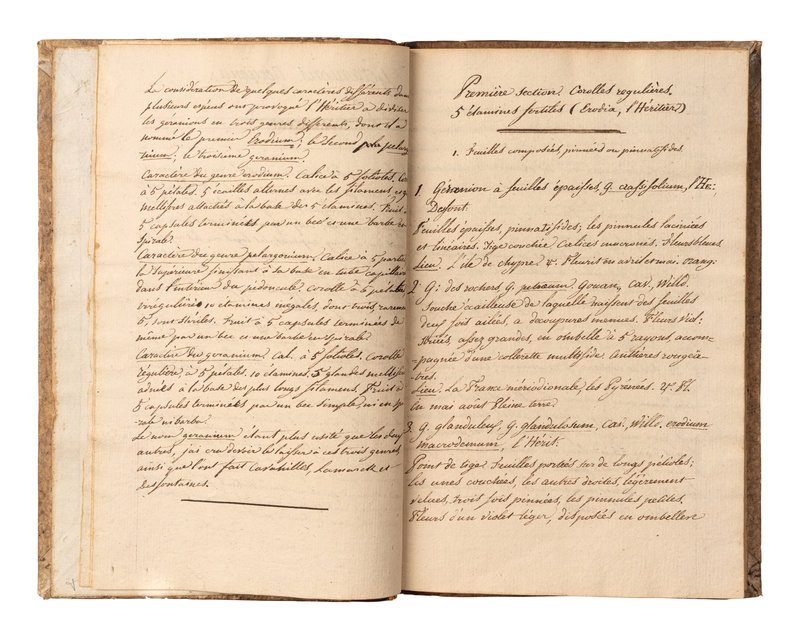 La considération de quelques caractères différents dans
plusieurs espèces ont provoqué l'Héritier à diviser
les geranions en trois genres différents, dont il a
nommé le premier Erodium; le second pelargo
nium; le troisième geranium.
Caractère du genre erodium. Calice à 5 folioles.
à 5 pétales. 5 écailles alternes avec les filaments,
mellifres attachés à la base de 5 étamines. Fruit à
5 capsules terminées par un bec et une barbe en
spirale.
Caractère du genre pelargonium. Calice à 5 parties
la supérieure finissant à sa base en tube capillaire
dans l'intérieur du pédoncule. corolle à 5 pétales
irrégulière. 10 étamines inégales, dont trois, rarement
5, sont stériles. Fruit à 5 capsules terminées de
même par un bec et une barbe en spirale.
Caractère du geranium. Cal. à 5 folioles. Corolle
régulière à 5 pétales. 10 étamines. 5 glandes mellifres
adnées à la base des plus longs filaments. Fruit à
5 capsules terminées par un bec simple, ni en spi
rale ni barbu.
Le nom geranium étant plus usité que les deux
autres, j'ai cru devoir le laisser à ces trois genres
ainsi que l'ont fait Cavanilles, Lamarck et
Desfontaines.
Première Section. Corolles regulières.
5 étamines fertiles (Erodia, l'Héritier)
1. Feuilles composées, pinnées ou pinnatifides
1 Géranion à feuilles épaisses, G. crassifolium, l'He:
Desfont.
Feuilles épaisses, pinnatifides; les pinnules laciniées
et linéaires. Tige couchée Calices mucronés. Fleurs bleues
Lieu. L'île de chypre ♃. Fleurit en avril et mai. Orang:
2 G: des rochers, G. petraeum, Gouan, Cav, Willd.
Souche écailleuse de laquelle naissent des feuilles
deux fois ailées, à découpures menues. Fleurs viol.
striées, assez grandes, en ombelle à 5 rayons, accom-
pagnée d'une collerette multifide. Anthères rougeâ-
tres.
Lieu. La France méridionale, les Pyrénées. ♃. Fl.
en mai août Pleine terre.
3 G. glanduleux, G. glandulosum, Cav. Willd. erodium
macrodenum, L'Hérit.
Point de tige. Feuilles portées sur de longs pétioles;
les unes couchées, les autres droites, légèrement
velues, trois fois pinnées, les pinnules petites.
Fleurs d'un violet léger, disposées en ombelle